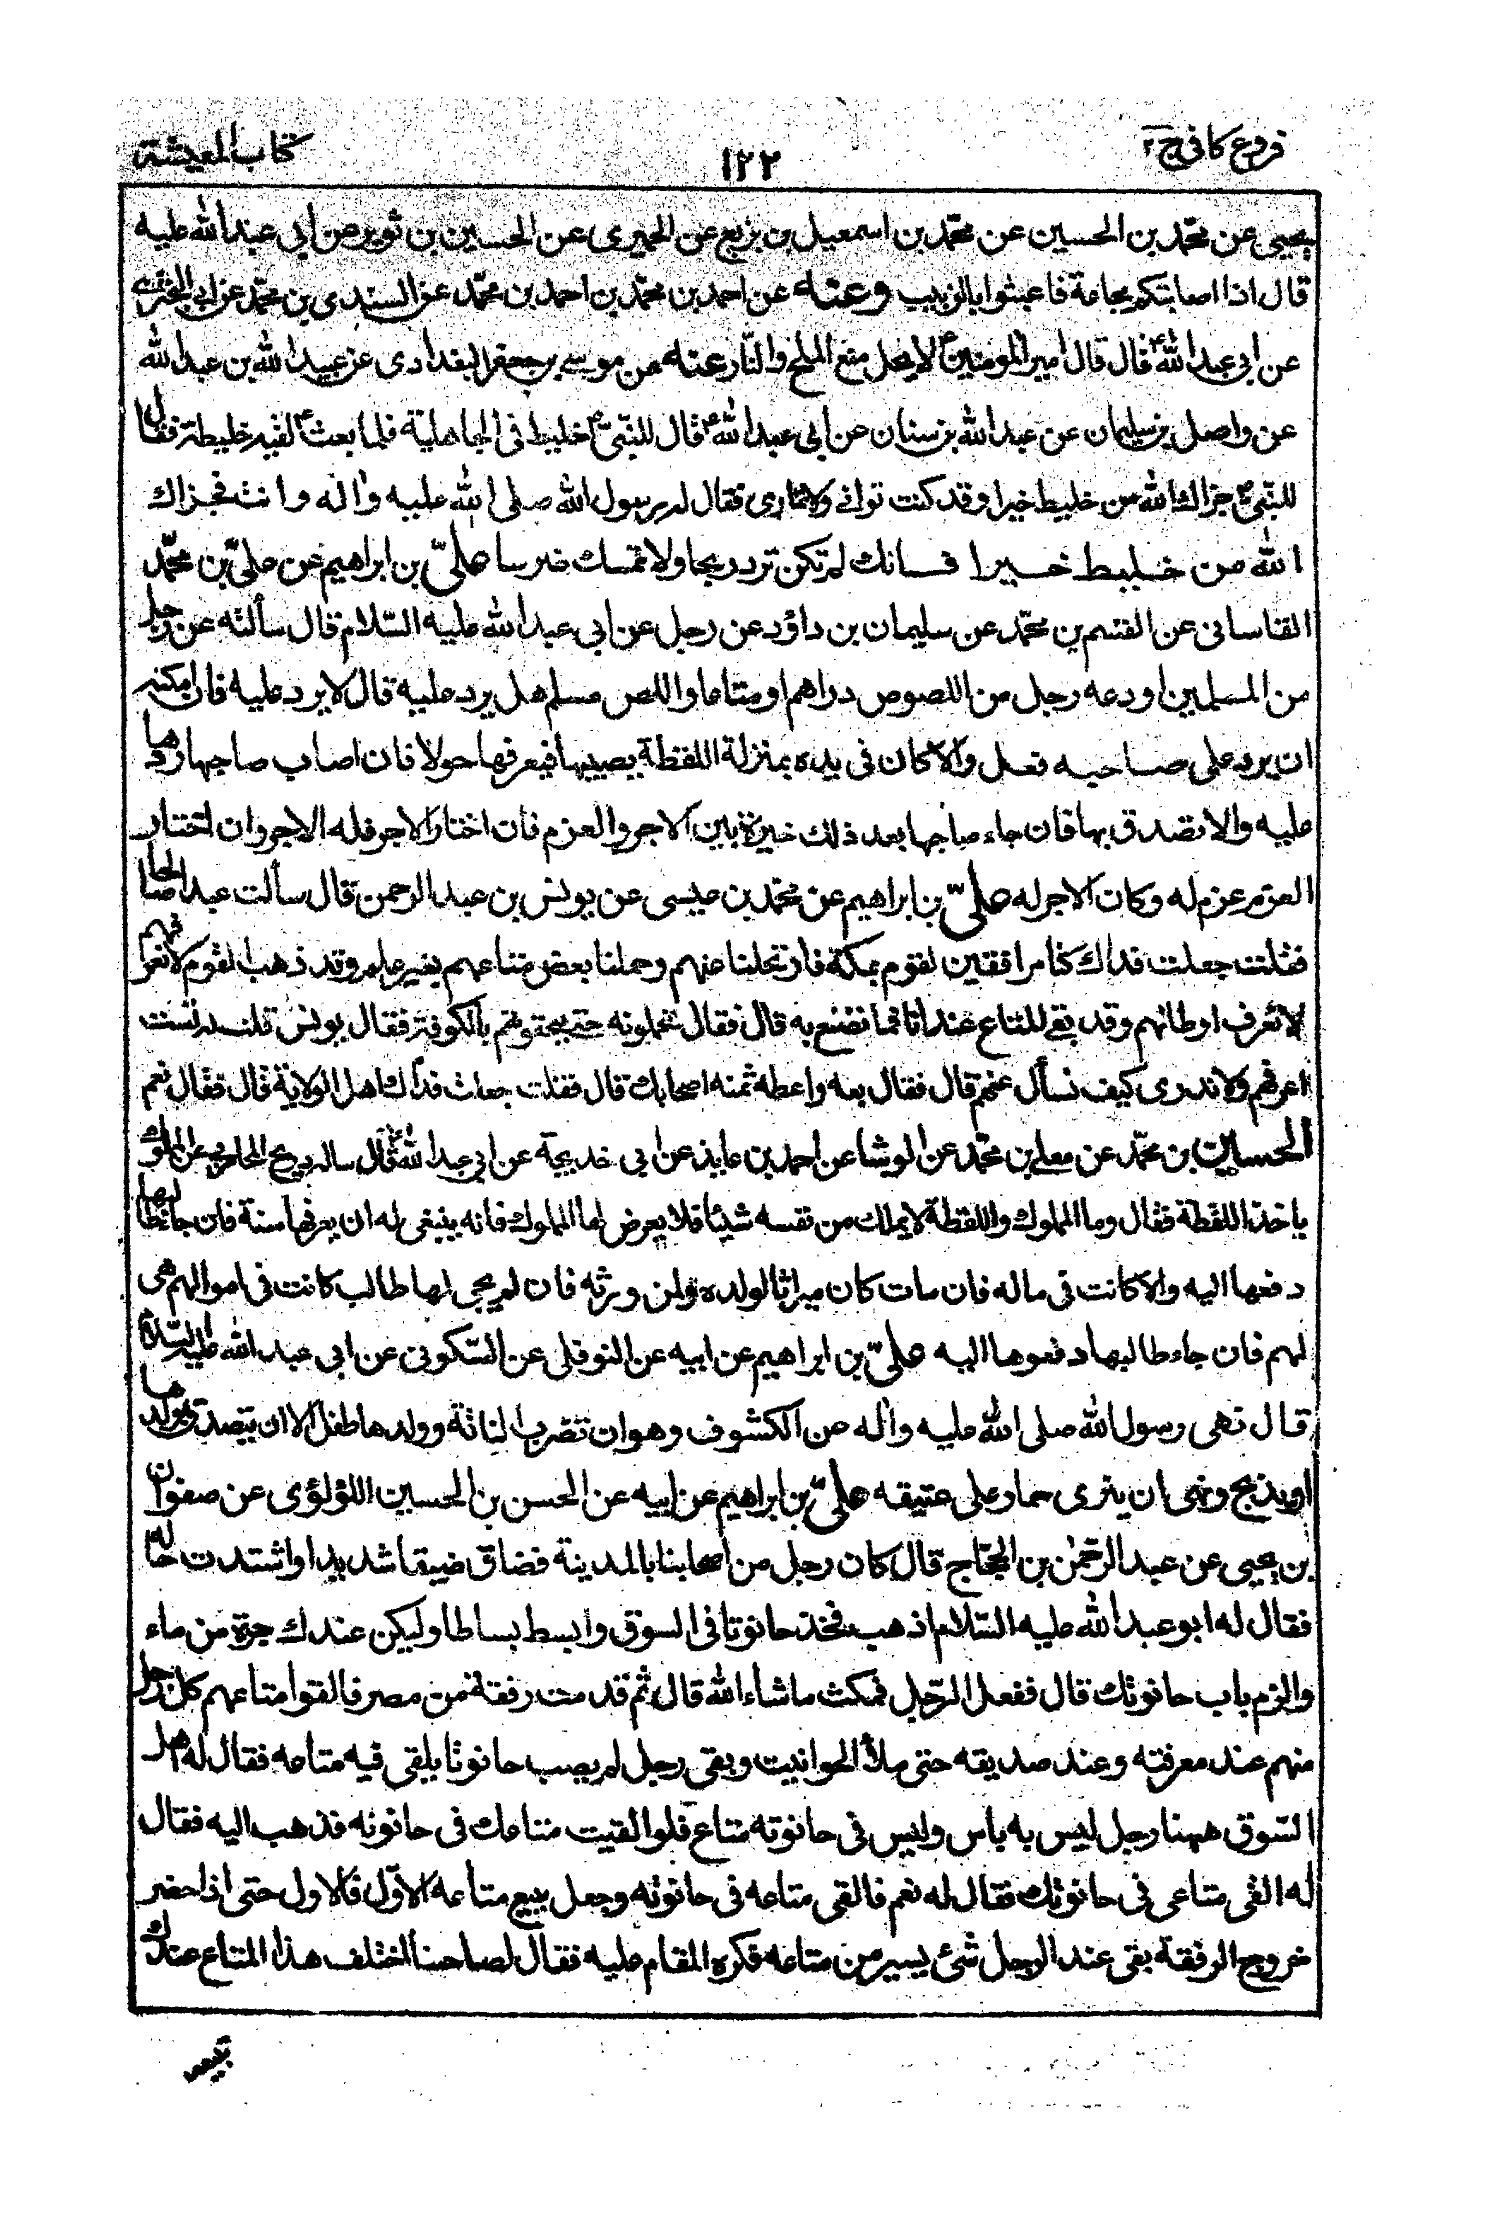 فروع كافي ج٢
١٢٢
كتاب المعيشة
يحيى عن محمّد بن الحسين عن محمّد بن اسمعيل بن بزيع عن الحميرى عن الحسين بن ثوير عن ابي عبد الله عليه
قال اذا اصابتكم مجاعة فاعبثوا بالزبيب وعنه عن احمد بن محمّد بن احمد بن محمّد عن السندى بن محمّد عن ابي البخترى
عن ابي عبد الله ع قال قال امير المومنين ع لا يحل منع الملح والنّار عنه عن موسى بن جعفر البغدادى عن عبيد الله بن عبد الله
عن واصل بن سليمان عن عبد الله بن سنان عن ابي عبد الله ع قال للنّبيّ ع خليط في الجاهلية فلما بعث ع لقيه خليطه فقال
للنّبيّ ع جزاك الله من خليط خيرا وقد كنت تواتى ولا تمارى فقال له رسول الله صلى الله عليه واله وانت فجزاك
الله من خليط خيرا فانك لم تكن ترد ربحا ولا تمسك ضرسا علىّ بن ابراهيم عن علىّ بن محمّد
القاسانى عن القسم بن محمّد عن سليمان بن داؤد عن رجل عن ابي عبد الله عليه السّلام قال سألته عن رجل
من المسلمين اودعه رجل من اللصوص دراهم او متاعا واللص مسلم هل يرد عليه قال لا يرد عليه فان امكنه
ان يرد على صاحبه فعل والا كان في يده بمنزلة اللقطة يصيبها فيعرفها حولا فان اصاب صاحبها ردها
عليه والا تصدق بها فان جاء صاحبها بعد ذلك خيرة بين الاجر والعزم فان اختار الاجر فله الاجر وان اختار
العزم عزم له وكان الاجر له علىّ بن ابراهيم عن محمّد بن عيسى عن يونس بن عبد الرحمن قال سألت عبدا صالحا
فقلت جعلت فداك كنا مرافقين لقوم بمكة فارتحلنا عنهم وحملنا بعض متاعهم بغير علم وقد ذهب القوم لا نعرفهم
لا نعرف اوطانهم وقد بقى المتاع عندنا فما نصنع به قال فقال تحملونه حتى يحقوهم بالكوفة فقال يونس قلت له لست
اعرفهم ولا ندرى كيف نسأل عنهم قال فقال بعه واعطه ثمنه اصحابك قال فقلت جعلت فداك اهل الولاية قال فقال نعم
الحسين بن محمّد عن معلى بن محمّد عن الوشا عن احمد بن عايذ عن ابي خديجة عن ابي عبد الله ع قال ساله ذريح المحاربى عن المملوك
ياخذ اللقطة فقال وما المملوك واللقطة لا يملك من نفسه شيئا فلا يعرض لها المملوك فانه ينبغى له ان يعرفها سنة فان جاء طالبها
دفعها اليه والا كانت في ماله فان مات كان ميراثا لولده ولمن ورثه فان لم يجى لها طالب كانت في اموالهم هى
لهم فان جاء طالبها دفعوها اليه علىّ بن ابراهيم عن ابيه عن النوفلى عن السّكونى عن ابي عبد الله عليه السّلام
قال نهى رسول الله صلى الله عليه واله عن الكشوف وهو ان تضرب الناقة وولدها طفل الا ان يتصدق بولدها
او يذبح ونهى ان ينزى حمار على عتيقه علىّ بن ابراهيم عن ابيه عن الحسن بن الحسين اللؤلؤى عن صفوان
بن يحيى عن عبد الرّحمن بن الحجّاج قال كان رجل من اصحابنا بالمدينة فضاق ضيقا شديدا واشتدت حاله
فقال له ابو عبد الله عليه السّلام اذهب فخذ حانوتا في السوق وابسط بساطا وليكن عندك جرة من ماء
والزم باب حانوتك قال ففعل الرّجل فمكث ما شاء الله قال ثم قدمت رفقة من مصر فالقوا متاعهم كل رجل
منهم عند معرفته وعند صديقه حتى ملأ الحوانيت وبقى رجل لم يصب حانوتا يلقى فيه متاعه فقال له اهل
السّوق ههنا رجل ليس به باس وليس في حانوته متاع فلو القيت متاعك في حانوته فذهب اليه فقال
له القى متاعى في حانوتك فقال له نعم فالقى متاعه في حانوته وجعل يبيع متاعه الاوّل فالاول حتى اذا حضر
خروج الرفقة بقى عند الرجل شئ يسير من متاعه فكره المقام عليه فقال لصاحبنا اخلف هذا المتاع عندك